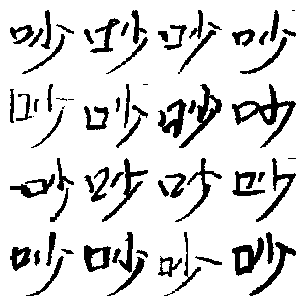 吵吵吵吵
吵吵吵吵
吵吵吵吵
吵吵吵吵